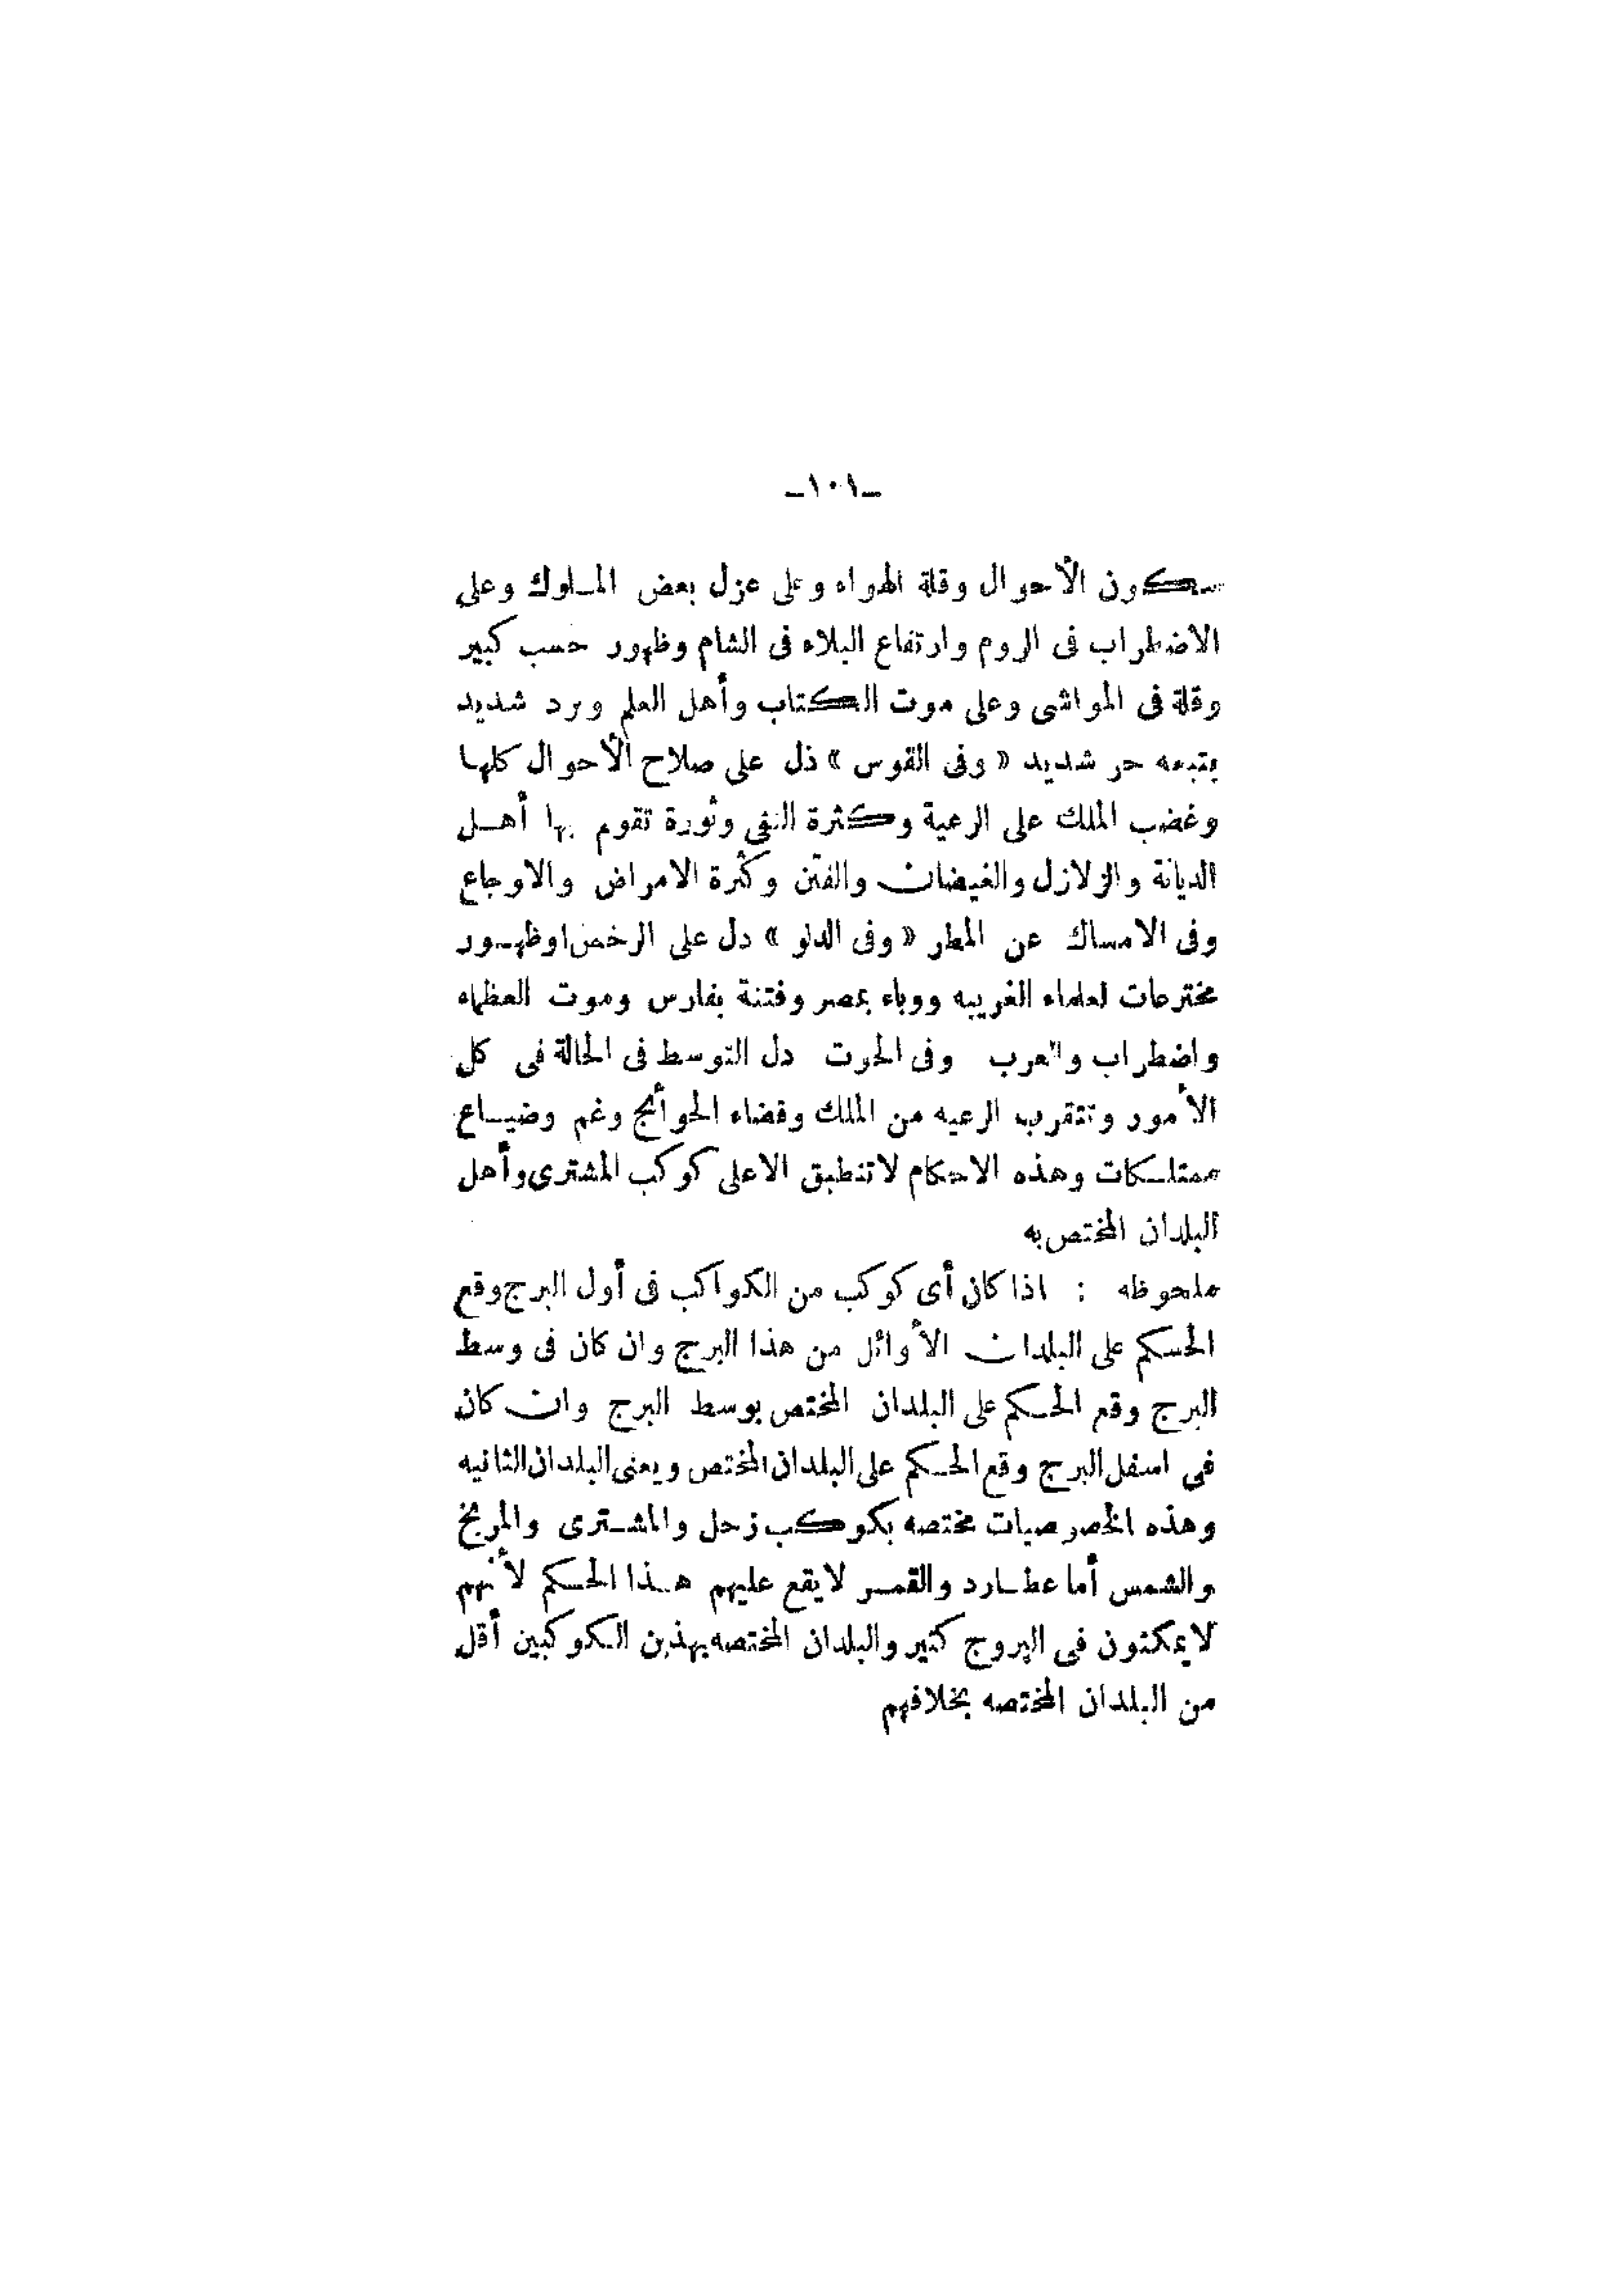 ـ١٠١ـ
سكون الأحوال وقلة الهواء وعلى عزل بعض الملوك وعلى
الاضطراب فى الروم وارتفاع البلاء فى الشام وظهور حسب كبير
وقلة فى المواشى وعلى موت الكتاب وأهل العلم وبرد شديد
يتبعه حر شديد « وفى القوس » ذل على صلاح الأحوال كلها
وغضب الملك على الرعية وكثرة النفى وثورة تقوم بها أهل
الديانة والزلازل والغيضان والفتن وكثرة الامراض والاوجاع
وفى الامساك عن المطر « وفى الدلو » دل على الرخص اوظهور
مخترعات لعلماء الغريبه ووباء بمصر وفتنة بفارس وموت العظماء
واضطراب والعرب وفى الحوت دل التوسط فى الحالة فى كل
الأمور وتتقرب الرعيه من الملك وقضاء الحوأنج وغم وضياع
ممتلكات وهذه الاحكام لاتنطبق الاعلى كوكب المشترى وأهل
البلدان المختص به
ملحوظه : اذا كان أى كوكب من الكواكب فى أول البرج وقع
الحكم على البلدان الأوائل من هذا البرج وان كان فى وسط
البرج وقع الحكم على البلدان المختص بوسط البرج وان كان
فى اسفل البرج وقع الحكم على البلدان المختص ويعنى البلدان الثانيه
وهذه الخصوصيات مختصه بكوكب زحل والمشترى والمريخ
والشمس أما عطارد والقمر لايقع عليهم هذا الحكم لأنهم
لايمكثون فى البروج كثير والبلدان المختصه بهذين الكوكبين أقل
من البلدان المختصه بخلافهم